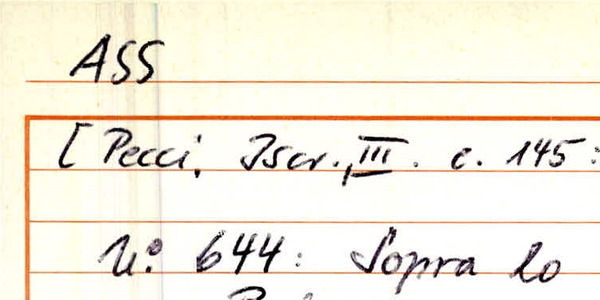 ASS
[Pecci, Iscr., III. c. 145:
N.º 644: Sopra lo